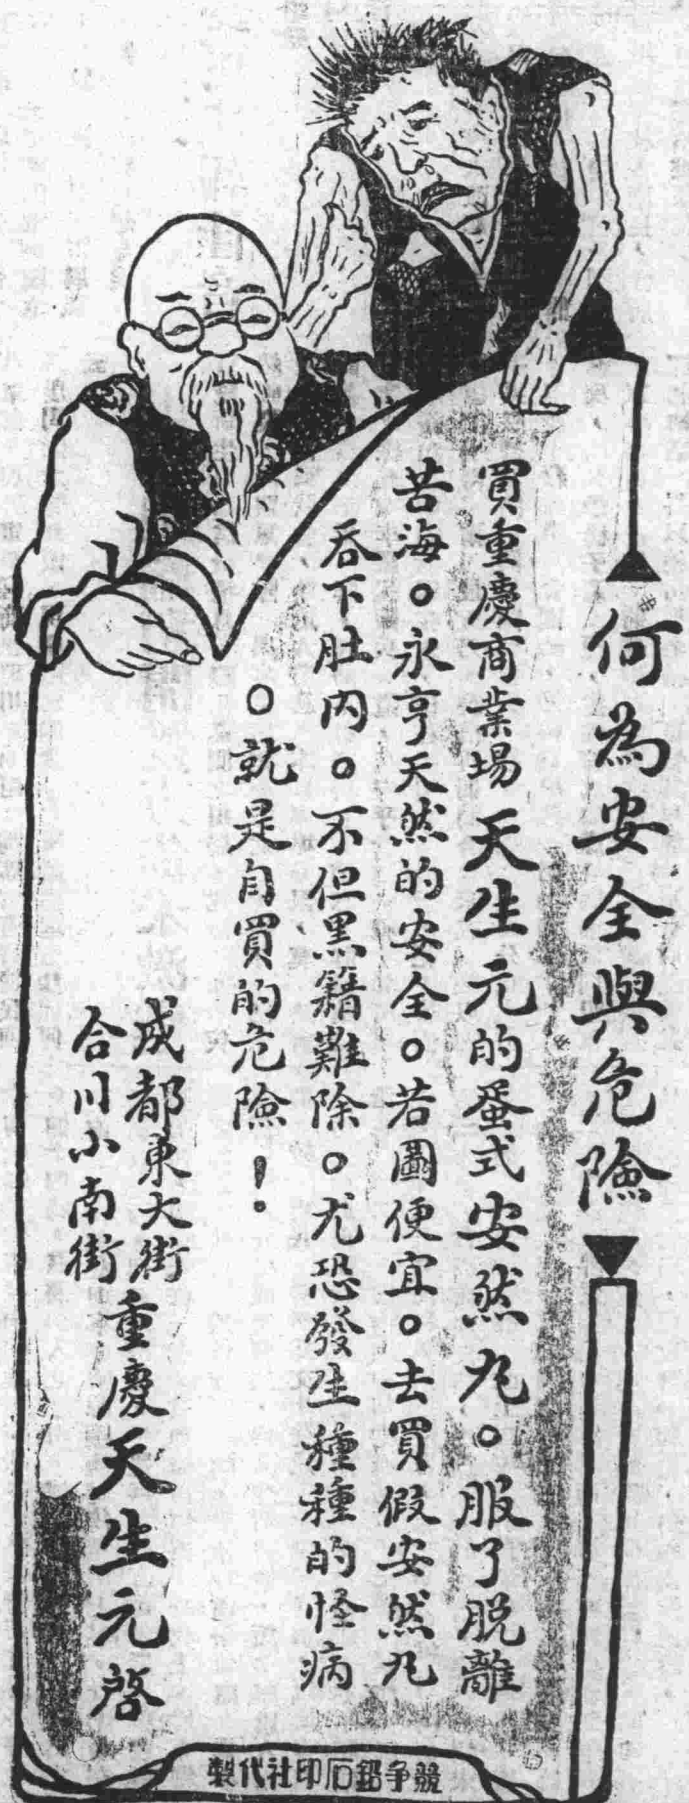 何為安全與危險
買重慶商業場天生元的蛋式安然丸。服了脫離
苦海。永亨天然的安全。若圖便宜。去買假安然丸
吞下肚內。不但黑籍難除。尤恐發生種種的怪病
。就是自買的危險！
成都東大街
合川小南街
重慶天生元啓
競爭鉛石印社代製